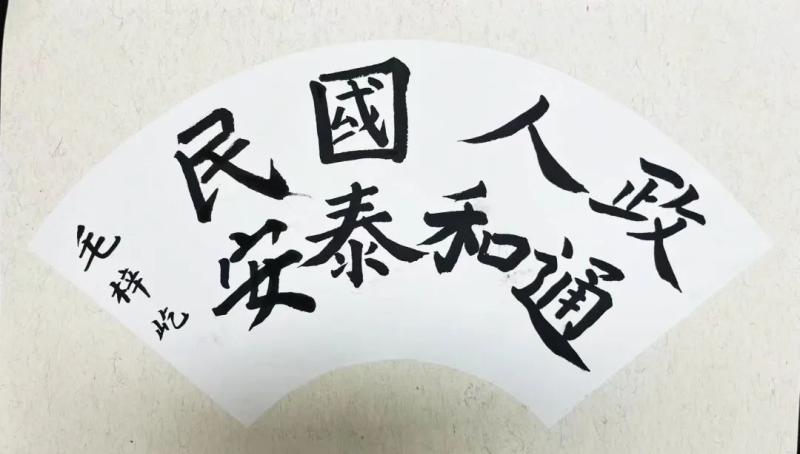 政通
人和
國泰
民安
毛梓屹